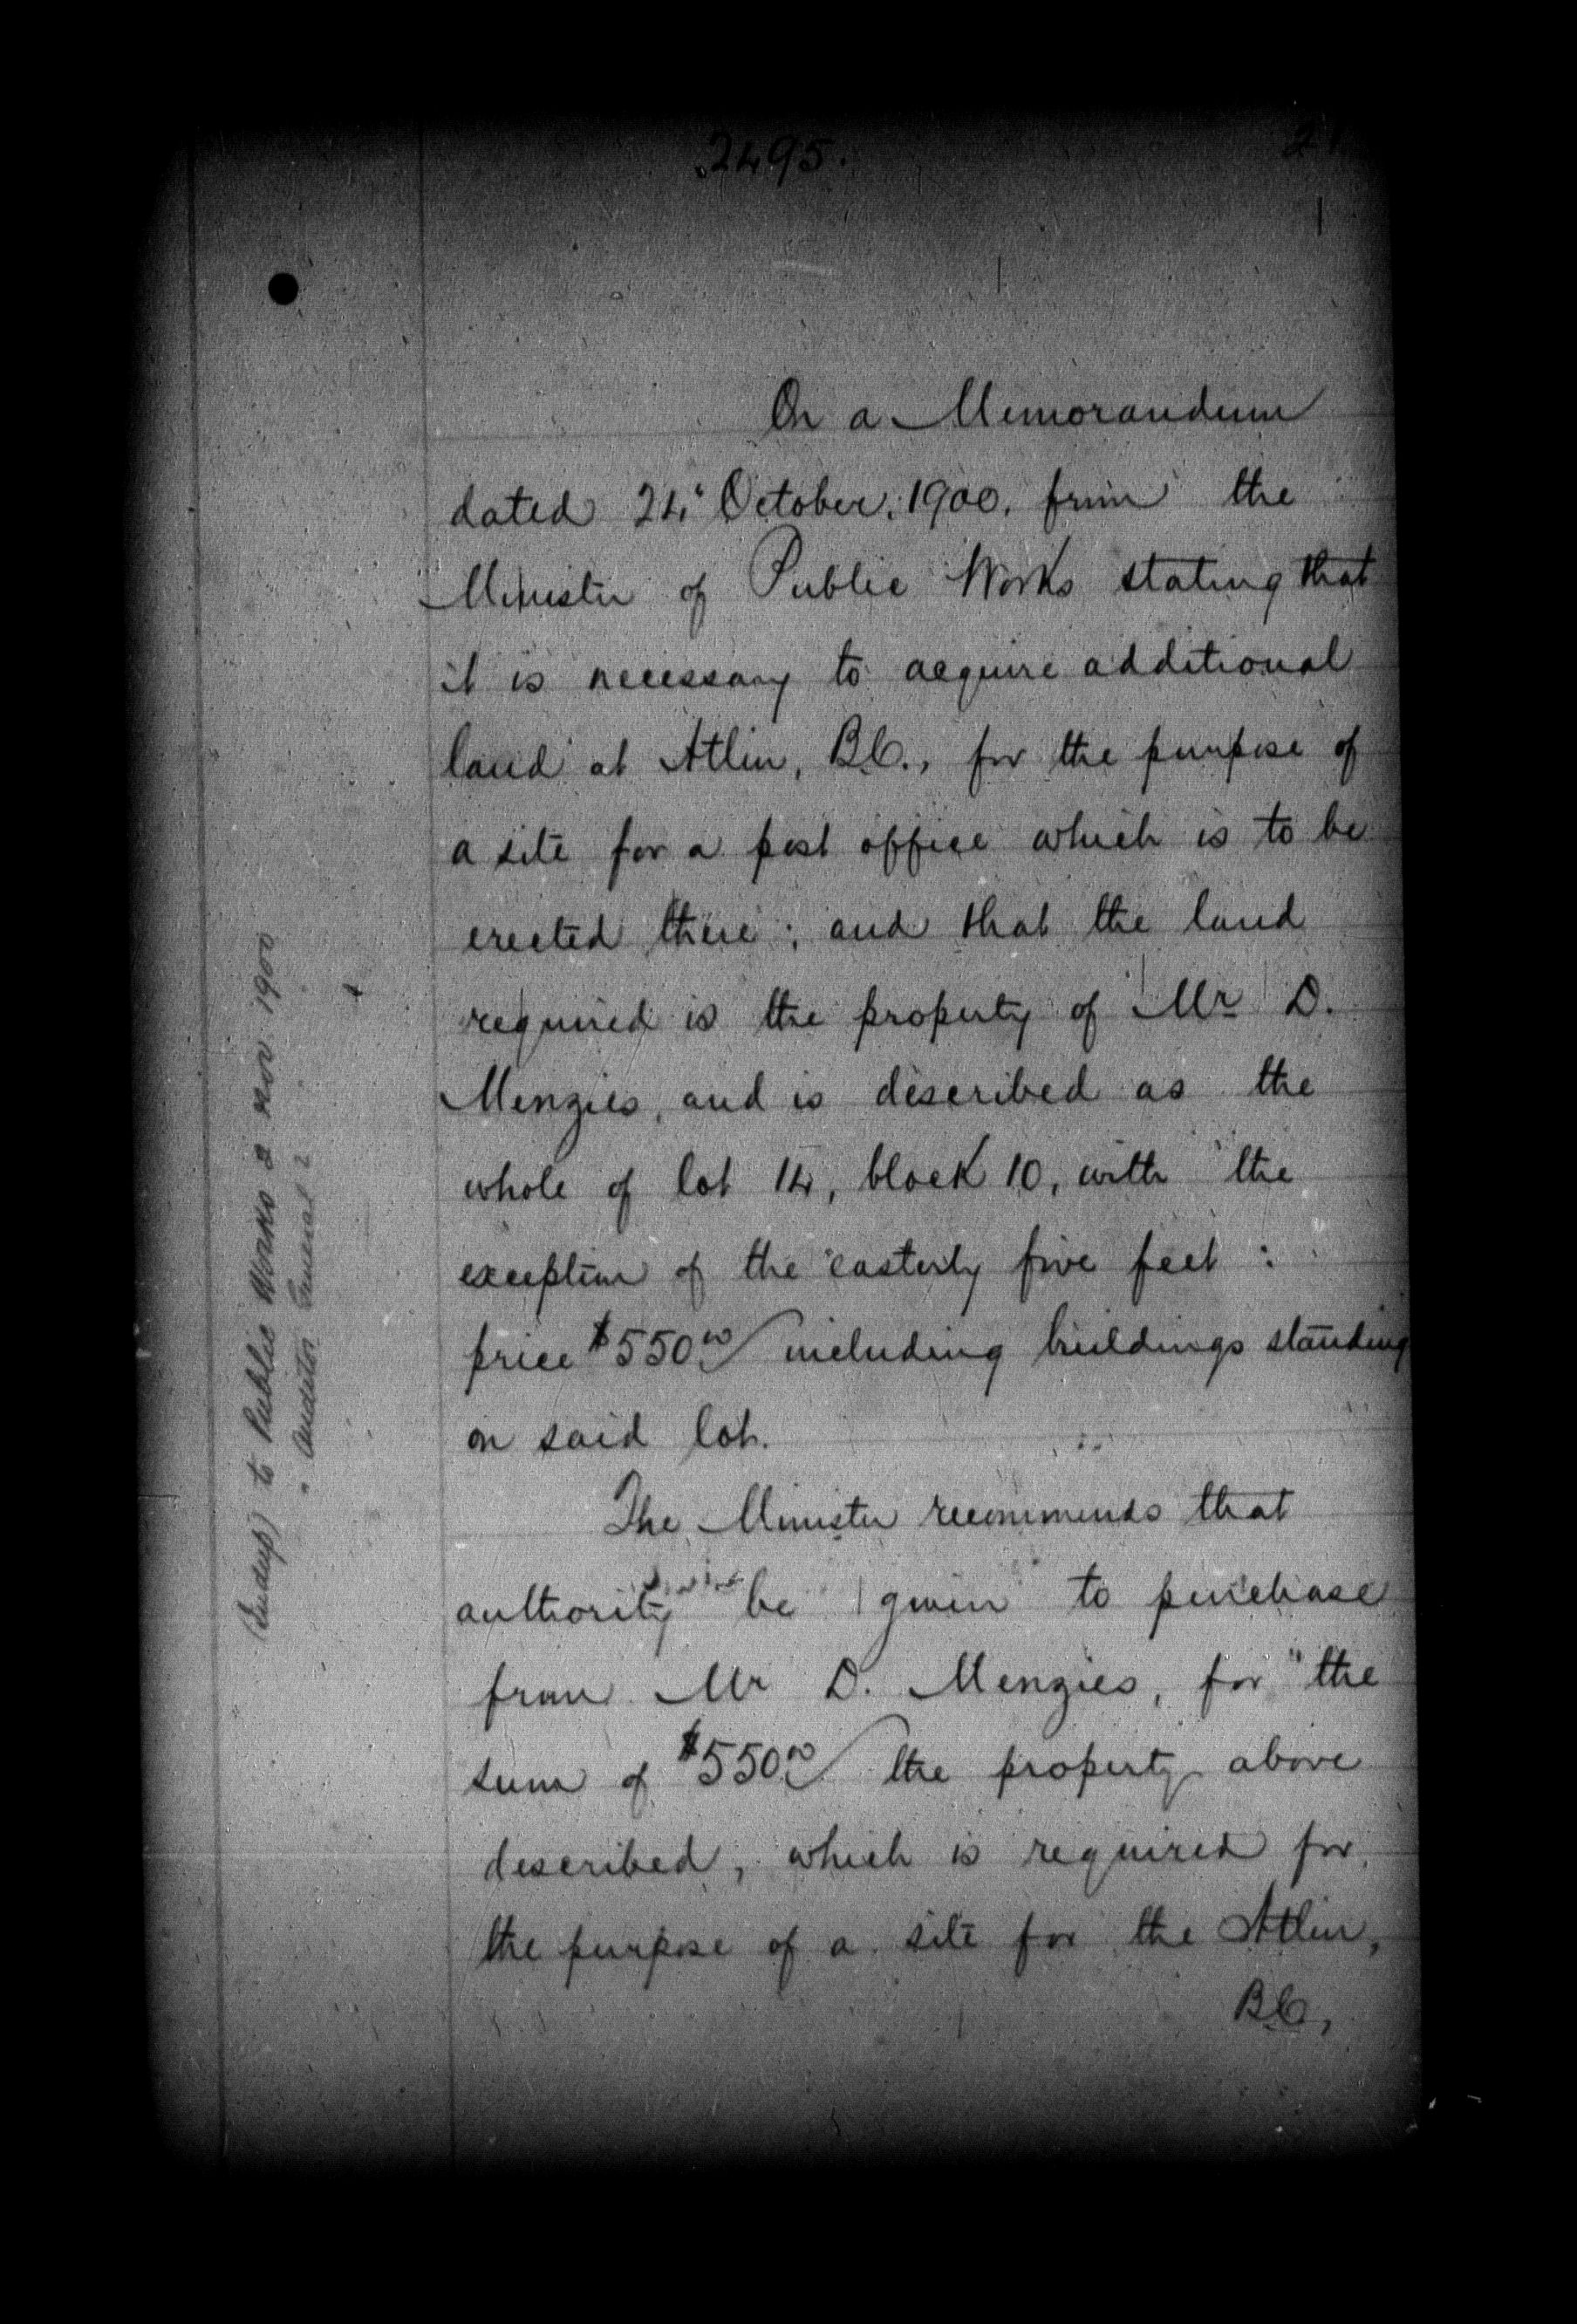 2495.
On a Memorandum
dated 24" October, 1900, from the
Minister of Public Works stating that
it is necessary to acquire additional
land at Atlin, B.C., for the purpose of
a site for a post office which is to be
erected there; and that the land
required is the property of Mr D.
Menzies, and is described as the
whole of lot 14, block 10, with the
exception of the easterly five feet:
price $550.00/ including buildings standing
on said lot.
The Minister recommends that
authority be given to purchase
from Mr D. Menzies, for the
sum of $550.00/ the property above
described, which is required for
the purpose of a site for the Atlin,
B.C.,
to Public Works 2 Nov. 1900
" Auditor General 2